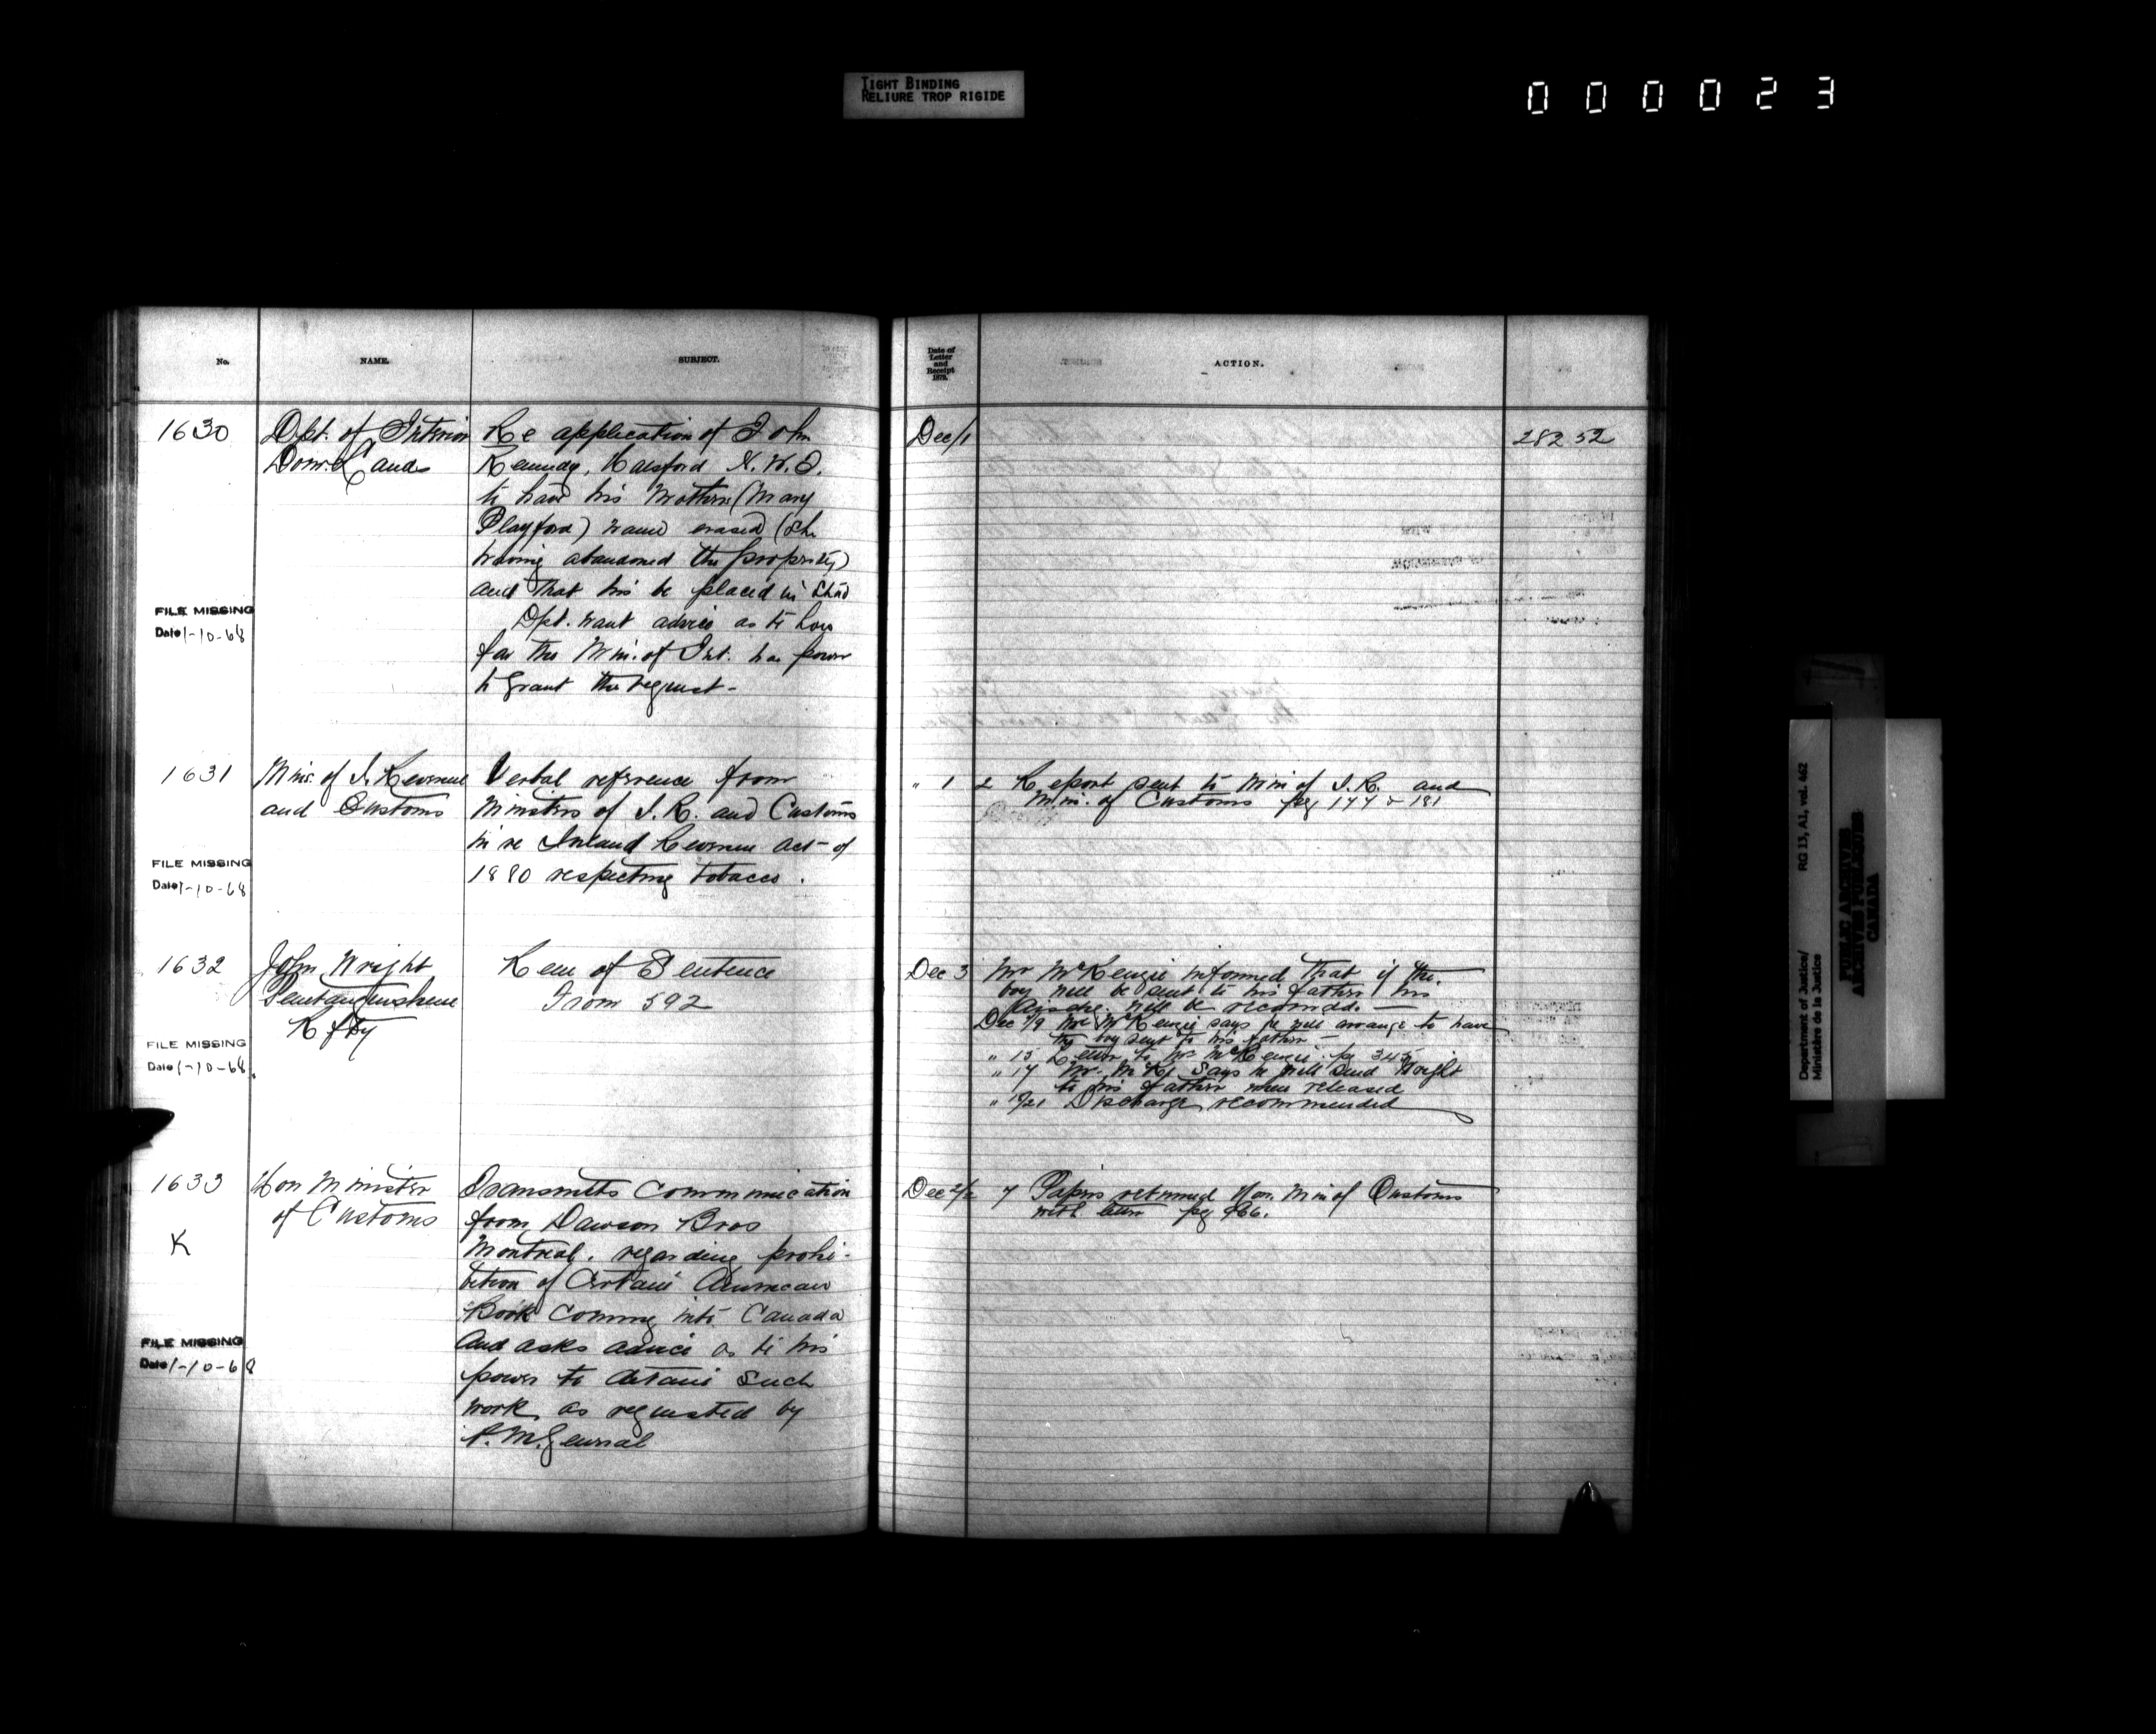 TIGHT BINDING
RELIURE TROP RIGIDE
000023
No.
NAME.
SUBJECT.
Date of
Letter
and
Receipt
1879.
ACTION.
1630
Dpt. of Interior
Dom. Lands
Re application of John
Kennedy, N. W. T.
to have his Mothers (Mary
Playford) name erased (she
having abandoned the property)
and that his be placed in stead
Dpt. want advice as to how
far the Min. of Int. has power
to grant the request-
FILE MISSING
Date 1-10-68
Dec/1
282 52
1631
Min. of I. Revenue
and Customs
Verbal reference from
Ministers of I. R. and Customs
in re Inland Revenue act of
1880 respecting tobacco.
FILE MISSING
Date 1-10-68
" 1
2 Report sent to Min of I. R. and
Min. of Customs pg 177 & 181
1632
John Wright
Penetanguishene
Rfty
Rem of Sentence
From 592
FILE MISSING
Date 1-10-68.
Dec 3
Mr McKenzie informed that if the
boy will be sent to his father his
dischg. will be recomdd. —
Dec 7/9 Mr McKenzie says he will arrange to have
the boy sent to his father —
" 13 Letter to Mr McKenzie pg 345
" 17 Mr. McK. says he will send Wright
to his father when released
" 19/21 Discharge recommended
1633
K
Hon Minister
of Customs
Transmits Communication
from Dawson Bros
Montreal. regarding prohi-
bition of Certain American
Book coming into Canada
and asks advice as to his
power to detain such
work as requested by
P. M. General
FILE MISSING
Date 1-10-68
Dec 2/2
7 Papers returned Hon. Min of Customs
with letter pg 266.
Department of Justice/
Ministère de la Justice
RG 13, A1, vol. 462
PUBLIC ARCHIVES
ARCHIVES PUBLIQUES
CANADA